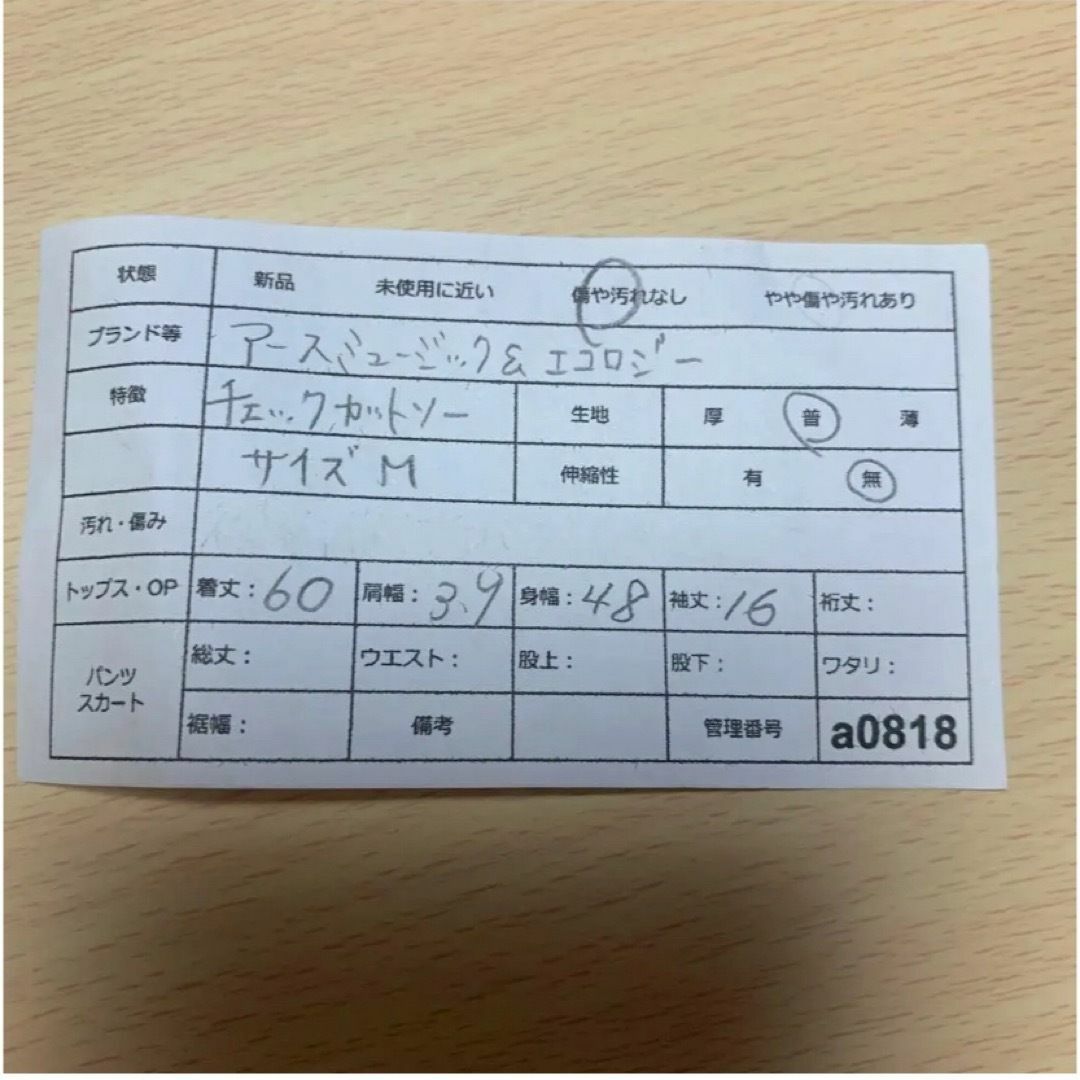 状態 新品 未使用に近い 傷や汚れなし やや傷や汚れあり
ブランド等 アースミュージック& エコロジー
特徴 チェックカットソー 生地 厚 普 薄
サイズ M 伸縮性 有 無
汚れ・傷み
トップス・OP 着丈：60 肩幅：3.9 身幅：48 袖丈：16 裄丈：
パンツ スカート 総丈： ウエスト： 股上： 股下： ワタリ：
裾幅： 備考 管理番号 a0818